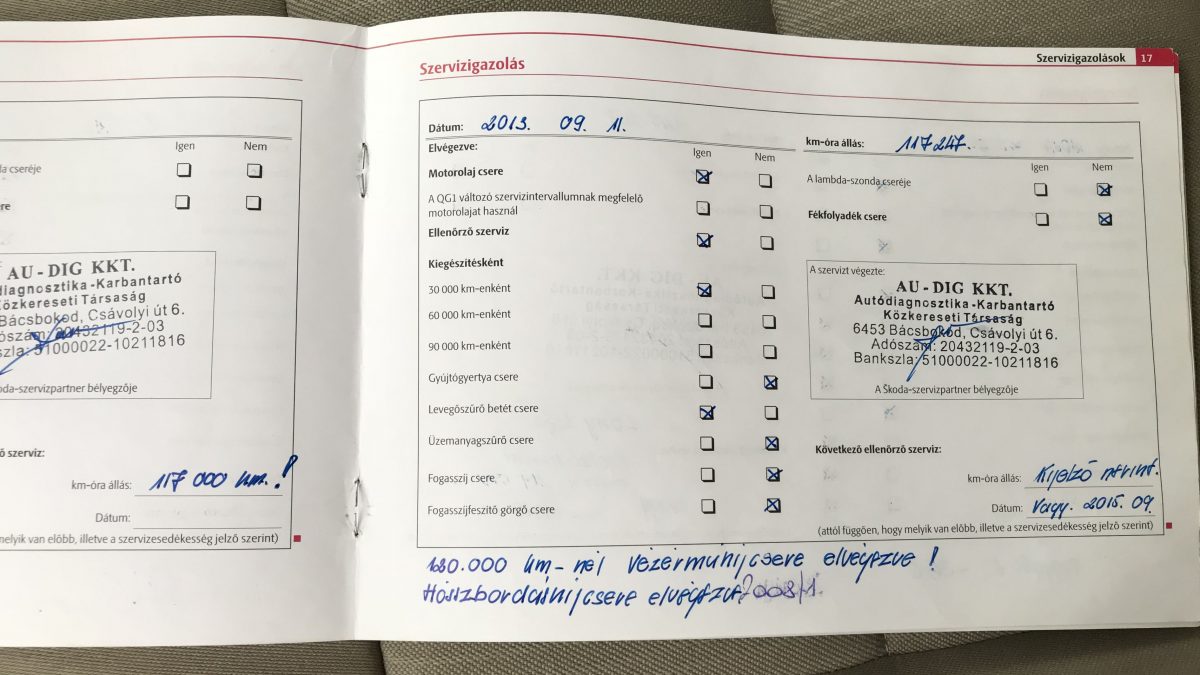 la cseréje
Igen
Nem
re
AU-DIG KKT.
diagnosztika-Karbantartó
Közkereseti Társaság
Bácsbokod, Csávolyi út 6.
ószám: 20432119-2-03
szla: 51000022-10211816
oda-szervizpartner bélyegzője
ő szerviz:
km-óra állás: 117 000 km.!
Dátum:
melyik van előbb, illetve a szervizesedékesség jelző szerint)
Szervizigazolások 17
Szervizigazolás
Dátum: 2013. 09. 11.
Elvégezve:
Igen
Nem
Motorolaj csere
A QG1 változó szervizintervallumnak megfelelő
motorolajat használ
Ellenőrző szerviz
Kiegészítésként
30 000 km-enként
60 000 km-enként
90 000 km-enként
Gyújtógyertya csere
Levegőszűrő betét csere
Üzemanyagszűrő csere
Fogasszíj csere
Fogasszíjfeszítő görgő csere
km-óra állás: 117247.
Igen
Nem
A lambda-szonda cseréje
Fékfolyadék csere
A szervizt végezte:
AU-DIG KKT.
Autódiagnosztika-Karbantartó
Közkereseti Társaság
6453 Bácsbokod, Csávolyi út 6.
Adószám: 20432119-2-03
Bankszla: 51000022-10211816
A Škoda-szervizpartner bélyegzője
Következő ellenőrző szerviz:
km-óra állás: Kijelző szerint.
Dátum: Vagy. 2015. 09.
(attól függően, hogy melyik van előbb, illetve a szervizesedékesség jelző szerint)
.000 km-nél vezérműszíjcsere elvégezve!
Hosszbordásszíjcsere elvégezve